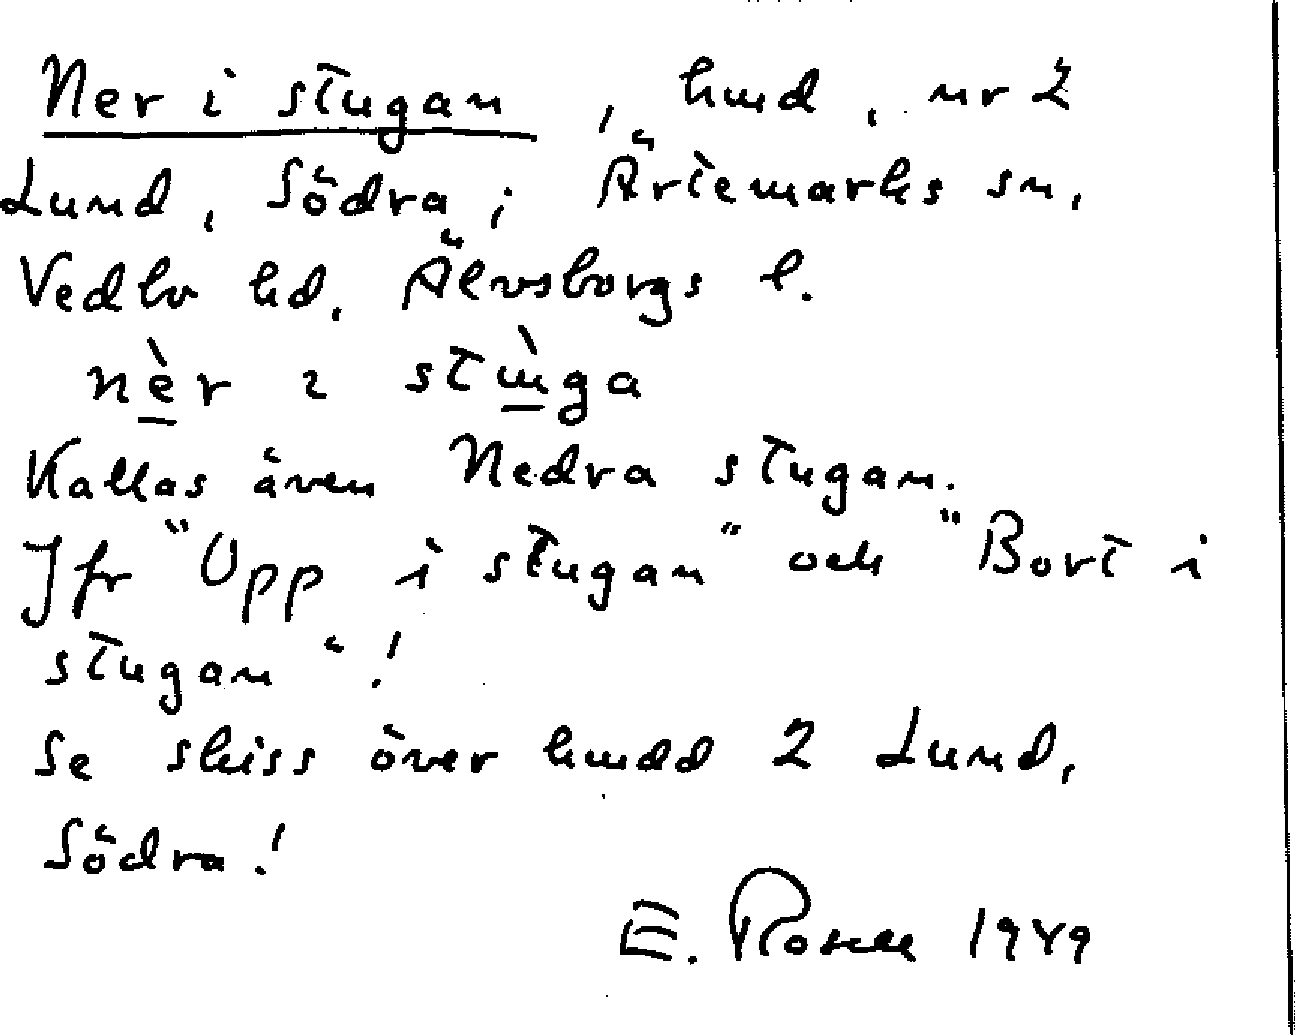 Ner i stugan, hmd, nr 2
Lund, Södra, i Ärtemarks sn,
Vedbo hd, Älvsborgs l.
nèr ɩ stɯ̀ga
Kallas även Nedra stugan.
Jfr "Upp i stugan" och "Bort i
stugan"!
Se skiss över hmdd 2 Lund,
Södra!
E. Rosell 1949